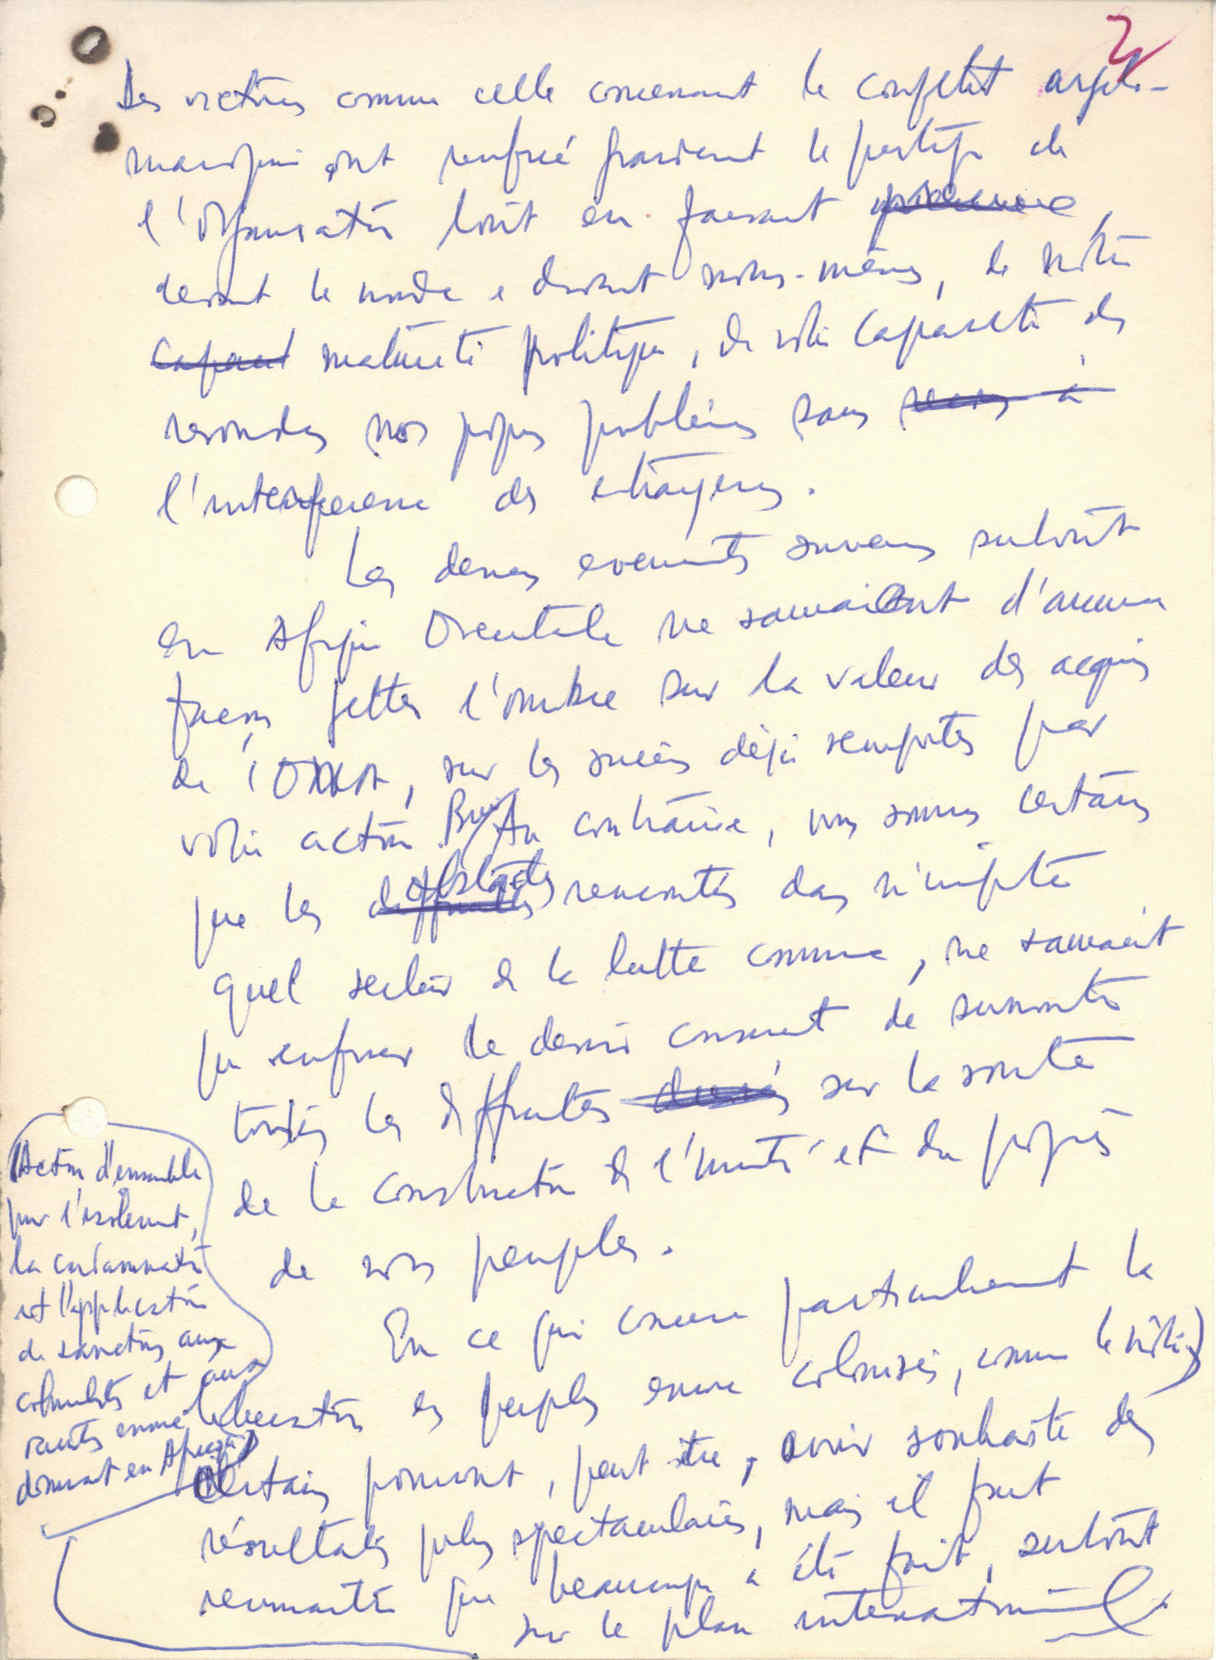 2
Des victoires comme celle concernant le conflit algéro-
marocain ont renforcé grandement le prestige de
l'Organisation tout en faisant preuve,
devant le monde e devant nous-mêmes, de notre
capaci maturité politique, de notre capacité de
resoudre nos propres problèmes sans
l'interference des etrangers.
Les derniers evenements survenus surtout
en Afrique Orientale ne sauraient d'aucune
façon jetter l'ombre sur la valeur des acquis
de l'OUA, sur les succès déjà remportés par
notre action. Au contraire, nous sommes certains
que les obstacles rencontrés dans n'importe
quel secteur de la lutte commune, ne sauraient
que renforcer le devoir commun de surmonter
toutes les difficultés sur la route
de la construction de l'unité et du progrès
de nos peuples.
En ce qui concerne particulierement la
liberation des peuples encore colonisés, comme le nôtre,
certains pourront, peut être, avoir souhaité des
résultats plus spectaculaires, mais il faut
reconnaitre que beaucoup a été fait, surtout
sur le plan international
Action d'ensemble
pour l'isolement,
la condamnation
et l'application
de sanctions aux
colonialistes et aux
racistes encore
dominant en Afrique